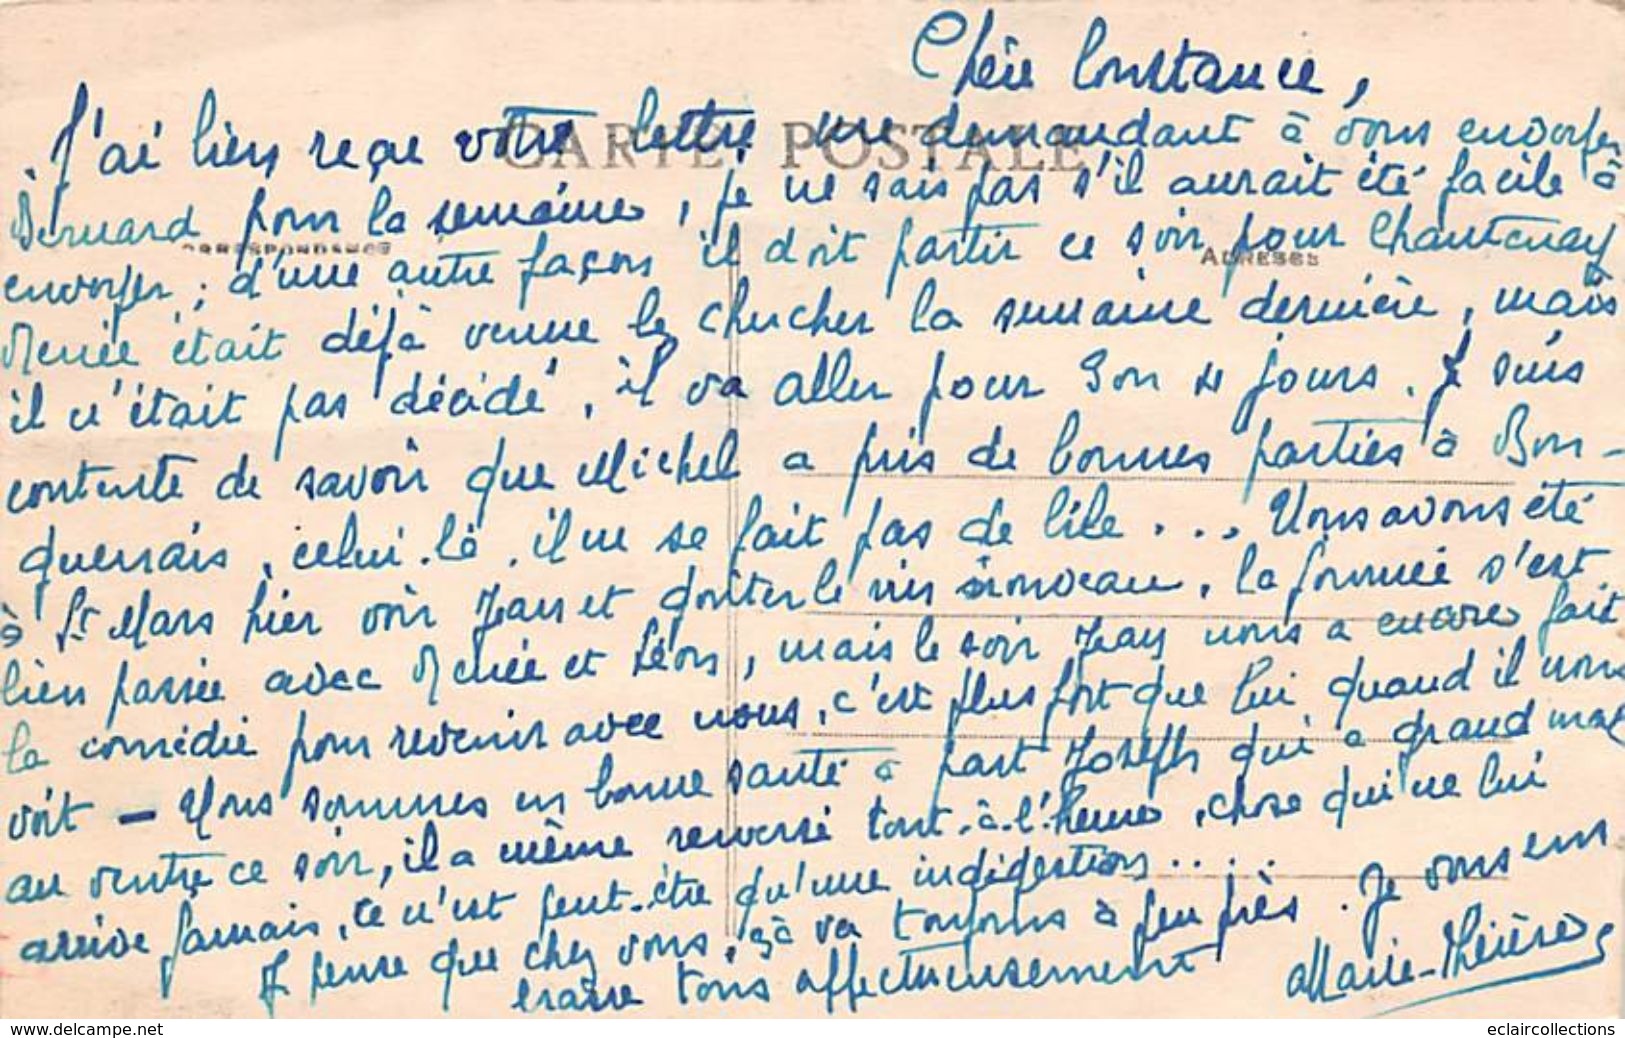 Chère Constance,
J'ai bien reçue votre lettre me demandant à vous envoyer
CARTE POSTALE
Bernard pour la semaine, je ne sais pas s'il aurait été facile à
CORRESPONDANCE
ADRESSE
envoyer ; d'une autre façon il doit partir ce soir pour Chantenay
Renée était déjà venue le chercher la semaine dernière, mais
il n'était pas décidé, il va aller pour 3 ou 4 jours. Je suis
contente de savoir que Michel a pris de bonnes parties à Bon-
querrais, celui-là, il ne se fait pas de bile ... Nous avons été
à St Mars hier voir Jean et goûter le vin nouveau, la journée s'est
bien passée avec Renée et Léon, mais le soir Jean nous a encore fait
la comédie pour revenir avec nous, c'est plus fort que lui quand il nous
voit — Nous sommes en bonne santé à part Joseph qui a grand mal
au ventre ce soir, il a même renversé tout-à-l'heure, chose qui ne lui
arrive jamais, ce n'est peut-être qu'une indigestion .....
Je pense que chez vous, çà va toujours à peu près. Je vous em
brasse tous affectueusement Marie-Thérèse
www.delcampe.net
eclaircollections